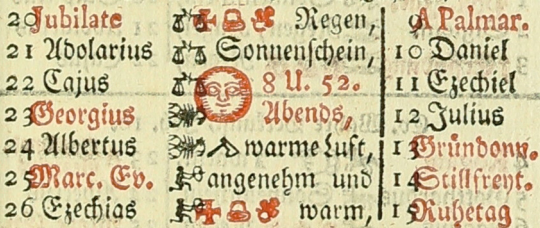 20 Jubilate Regen, 9 A Palmar.
21 Adolarius Sonnenschein, 10 Daniel
22 Cajus 8 U. 52. 11 Ezechiel
23 Georgius Abends, 12 Julius
24 Albertus warme Luft, 13 Gründonn.
25 Marc. Ev. angenehm und 14 Stillfreyt.
26 Ezechias warm, 15 Ruhetag